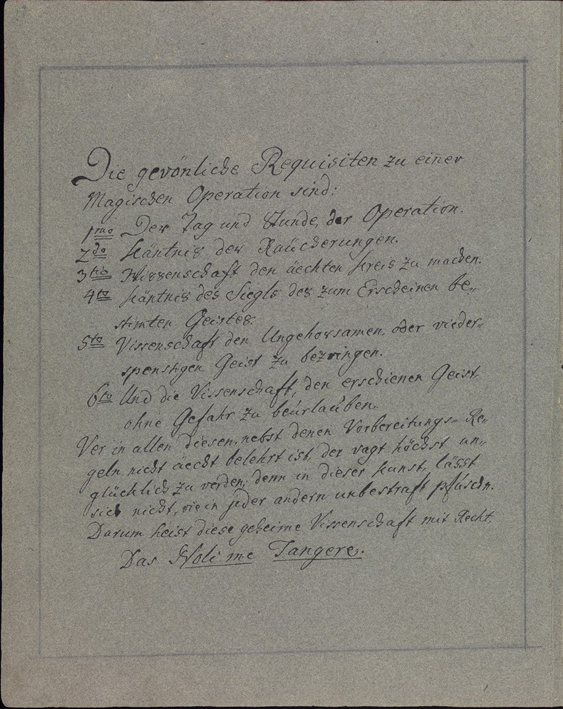 Die gevönliche Requisiten zu einer
Magischen Operation sind:
1mo Der Tag und Stunde, der Operation.
2do Käntnis der Raücherungen.
3tio Wissenschaft den äechten Kreis zu machen.
4to Käntnis des Siegls des zum Erscheinen be-
stimten Geistes.
5to Vissenschaft den Ungehorsamen, oder vieder-
spenstigen Geist zu bezvingen.
6to Und die Vissenschaft, den erschienen Geist
ohne Gefahr zu beürlauben.
Ver in allen diesen, nebst denen Vorbereitungs-Re-
geln nicht äecht belehrt ist, der vagt höchst un-
glücklich zu verden, denn in dieser Kunst, lässt
sich nicht, vie in jeder andern unbestraft pfuschn.
Darum heist diese geheime Vissenschaft mit Recht
Das Noli me Tangere.